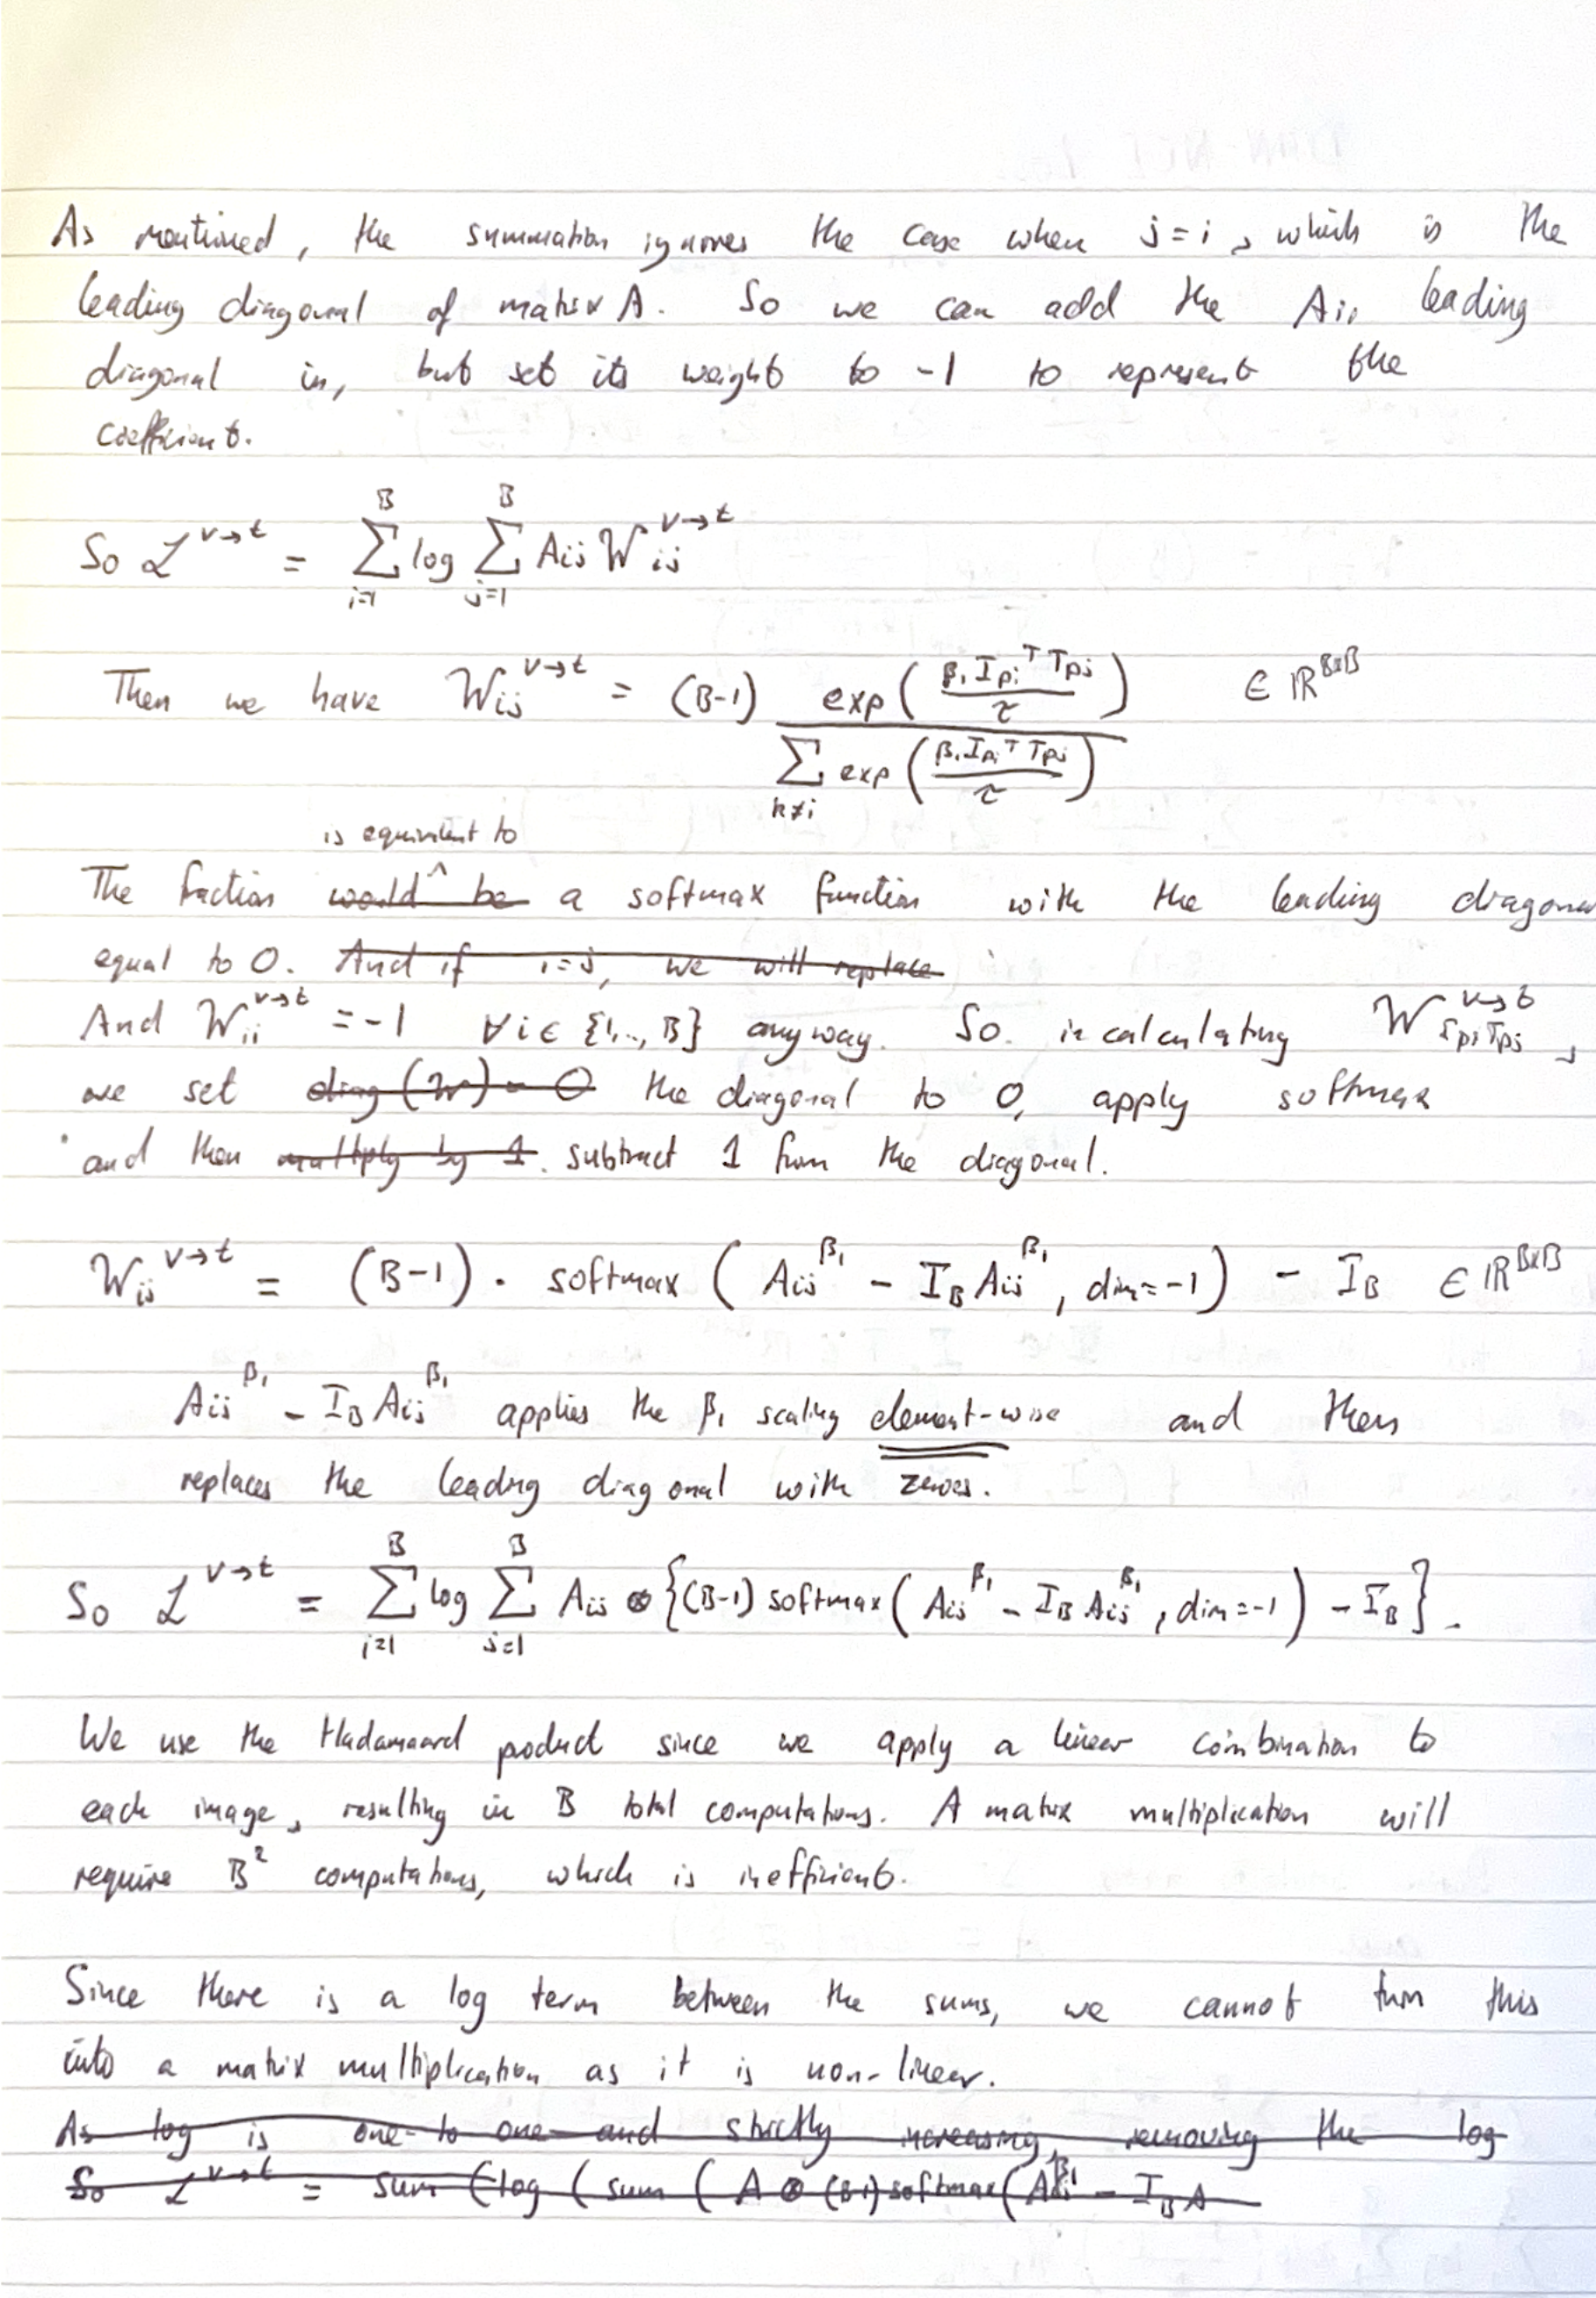 As mentioned, the summation ignores the case when j=i, which is the
leading diagonal of matrix A. So we can add the Aii leading
diagonal in, but set its weight to -1 to represent the
coefficient.
So ℒ^{v→t} = ∑_{i=1}^{B} log ∑_{j=1}^{B} A_{ij} W_{ij}^{v→t}
Then we have W_{ij}^{v→t} = (B-1) exp(β₁ I_{pi}^T T_{pj} / τ) / ∑_{k≠i} exp(β₁ I_{pi}^T T_{pj} / τ) ∈ ℝ^{B×B}
is equivalent to
The fraction ~~would be~~ ^ a softmax function with the leading diagonal
equal to 0. ~~And if i=j, we will replace~~
And W_{ii}^{v→t} = -1 ∀ i ∈ {1,.., B} anyway. So in calculating W_{I_{pi}T_{pj}}^{v→t},
we set ~~diag(W) = 0~~ the diagonal to 0, apply softmax
and then ~~multiply by 1~~. subtract 1 from the diagonal.
W_{ij}^{v→t} = (B-1) · softmax(A_{ij}^{β₁} - I_B A_{ij}^{β₁}, dim=-1) - I_B ∈ ℝ^{B×B}
A_{ij}^{β₁} - I_B A_{ij}^{β₁} applies the β₁ scaling element-wise and then
replaces the leading diagonal with zeroes.
So ℒ^{v→t} = ∑_{i=1}^{B} log ∑_{j=1}^{B} A_{ij} ⊗ {(B-1) softmax(A_{ij}^{β₁} - I_B A_{ij}^{β₁}, dim=-1) - I_B}.
We use the Hadamaard product since we apply a linear combination to
each image, resulting in B total computations. A matrix multiplication will
require B² computations, which is inefficient.
Since there is a log term between the sums, we cannot turn this
into a matrix multiplication as it is non-linear.
~~As log is one-to one and strictly increasing, removing the log~~
~~So ℒ^{v→t} = sum(log(sum(A ⊗ (B-1) softmax(A_{ij}^{β₁} - I_B A~~